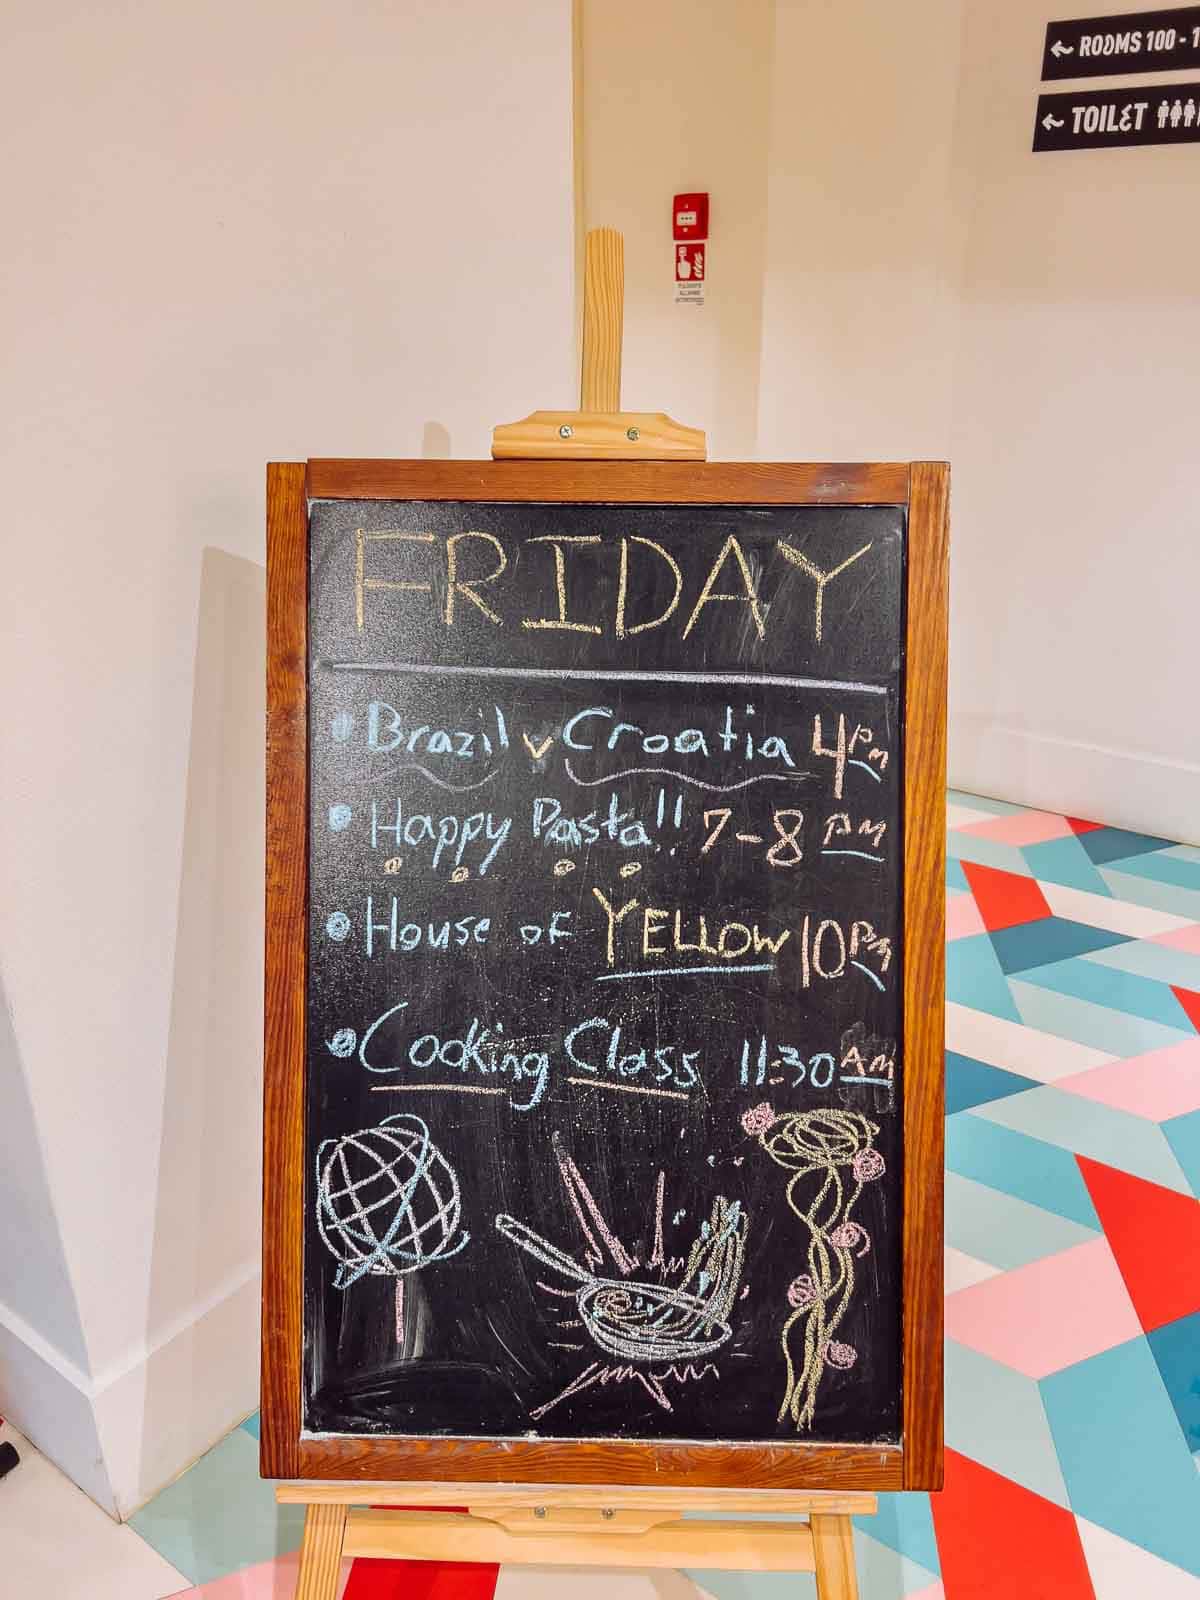 ← ROOMS 100 - 1
← TOILET
FRIDAY
• Brazil v Croatia 4PM
• Happy Pasta!! 7-8 PM
• House of YELLOW 10PM
• Cooking Class 11:30 AM